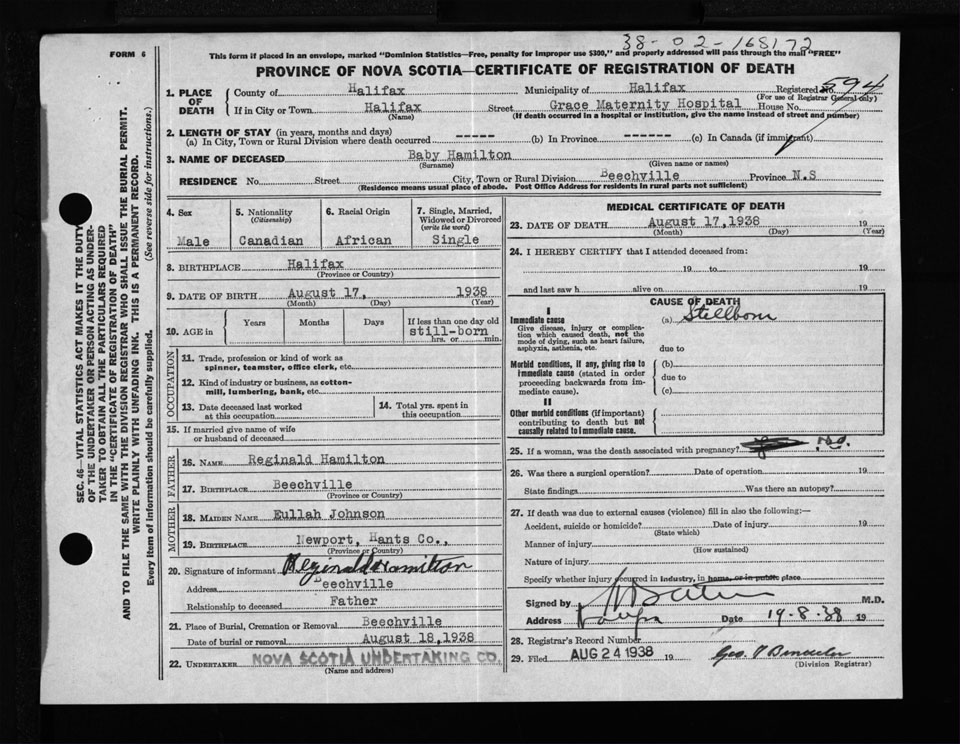 38-02-168172
FORM 6
This form if placed in an envelope, marked "Dominion Statistics—Free, penalty for improper use $300," and properly addressed will pass through the mail "FREE"
PROVINCE OF NOVA SCOTIA—CERTIFICATE OF REGISTRATION OF DEATH
1. PLACE OF DEATH
County of Halifax Municipality of Halifax Registered No. 594
(For use of Registrar General only)
If in City or Town Halifax Street Grace Maternity Hospital House No.
(Name) (If death occurred in a hospital or institution, give the name instead of street and number)
2. LENGTH OF STAY (in years, months and days)
(a) In City, Town or Rural Division where death occurred ----- (b) In Province ------ (c) In Canada (if immigrant)
3. NAME OF DECEASED Baby Hamilton
(Surname) (Given name or names)
RESIDENCE No. Street City, Town or Rural Division Beechville Province N.S
(Residence means usual place of abode. Post Office Address for residents in rural parts not sufficient)
4. Sex
Male
5. Nationality
(Citizenship)
Canadian
6. Racial Origin
African
7. Single, Married,
Widowed or Divorced
(write the word)
Single
8. BIRTHPLACE Halifax
(Province or Country)
9. DATE OF BIRTH August 17, 1938
(Month) (Day) (Year)
10. AGE in
Years Months Days If less than one day old
still-born
hrs. or min.
OCCUPATION
11. Trade, profession or kind of work as
spinner, teamster, office clerk, etc.
12. Kind of industry or business, as cotton-
mill, lumbering, bank, etc.
13. Date deceased last worked
at this occupation
14. Total yrs. spent in
this occupation
15. If married give name of wife
or husband of deceased
FATHER
16. NAME Reginald Hamilton
17. BIRTHPLACE Beechville
(Province or Country)
MOTHER
18. MAIDEN NAME Eullah Johnson
19. BIRTHPLACE Newport, Hants Co.,
(Province or Country)
20. Signature of informant Reginald Hamilton
Address Beechville
Relationship to deceased Father
21. Place of Burial, Cremation or Removal Beechville
Date of burial or removal August 18,1938
22. UNDERTAKER NOVA SCOTIA UNDERTAKING CO.
(Name and address)
MEDICAL CERTIFICATE OF DEATH
23. DATE OF DEATH August 17,1938 19
(Month) (Day) (Year)
24. I HEREBY CERTIFY that I attended deceased from:
19 to 19
and last saw h alive on 19
CAUSE OF DEATH
I
Immediate cause
Give disease, injury or complication which caused death, not the mode of dying, such as heart failure, asphyxia, asthenia, etc.
(a) Stillborn
due to
Morbid conditions, if any, giving rise to immediate cause (stated in order proceeding backwards from immediate cause).
(b)
due to
(c)
II
Other morbid conditions (if important) contributing to death but not causally related to immediate cause.
25. If a woman, was the death associated with pregnancy? No.
26. Was there a surgical operation? Date of operation 19
State findings Was there an autopsy?
27. If death was due to external causes (violence) fill in also the following:—
Accident, suicide or homicide? Date of injury 19
(State which)
Manner of injury
(How sustained)
Nature of injury
Specify whether injury occurred in industry, in home, or in public place
Signed by M.D.
Address Date 19-8-38 19
28. Registrar's Record Number
29. Filed AUG 24 1938 19 Geo.
(Division Registrar)
SEC. 46—VITAL STATISTICS ACT MAKES IT THE DUTY
OF THE UNDERTAKER OR PERSON ACTING AS UNDER-
TAKER TO OBTAIN ALL THE PARTICULARS REQUIRED
IN THE "CERTIFICATE OF REGISTRATION OF DEATH"
AND TO FILE THE SAME WITH THE DIVISION REGISTRAR WHO SHALL ISSUE THE BURIAL PERMIT.
WRITE PLAINLY WITH UNFADING INK. THIS IS A PERMANENT RECORD.
Every item of information should be carefully supplied. (See reverse side for instructions.)